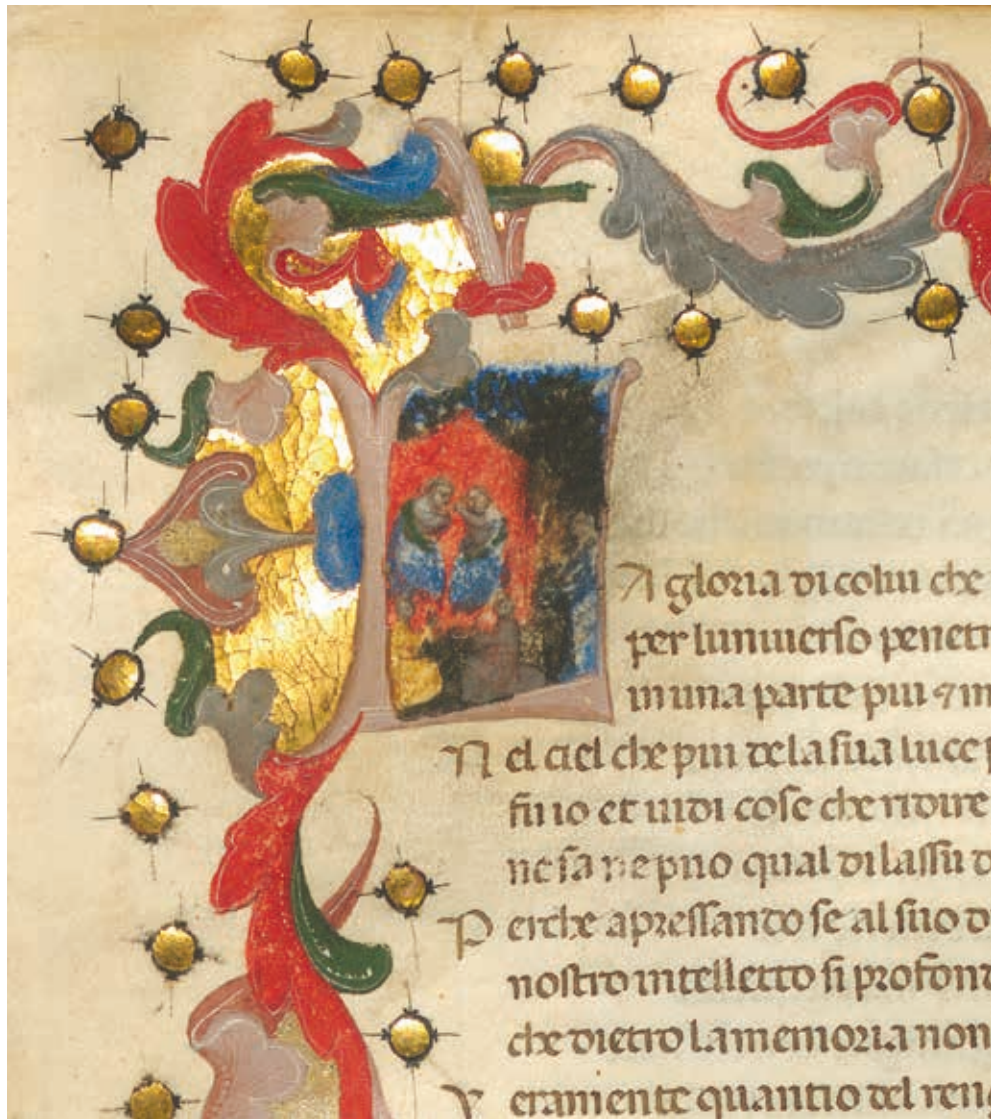 LA gloria di colui che
per luniuerso penetr
in una parte piu ⁊ m
N el ciel che piu dela sua luce p
fu io et uidi cose che ridire
ne sa ne puo qual di lassu d
P erche apressando se al suo d
nostro intelletto si profond
che dietro la memoria non
V eramente quantio del ren